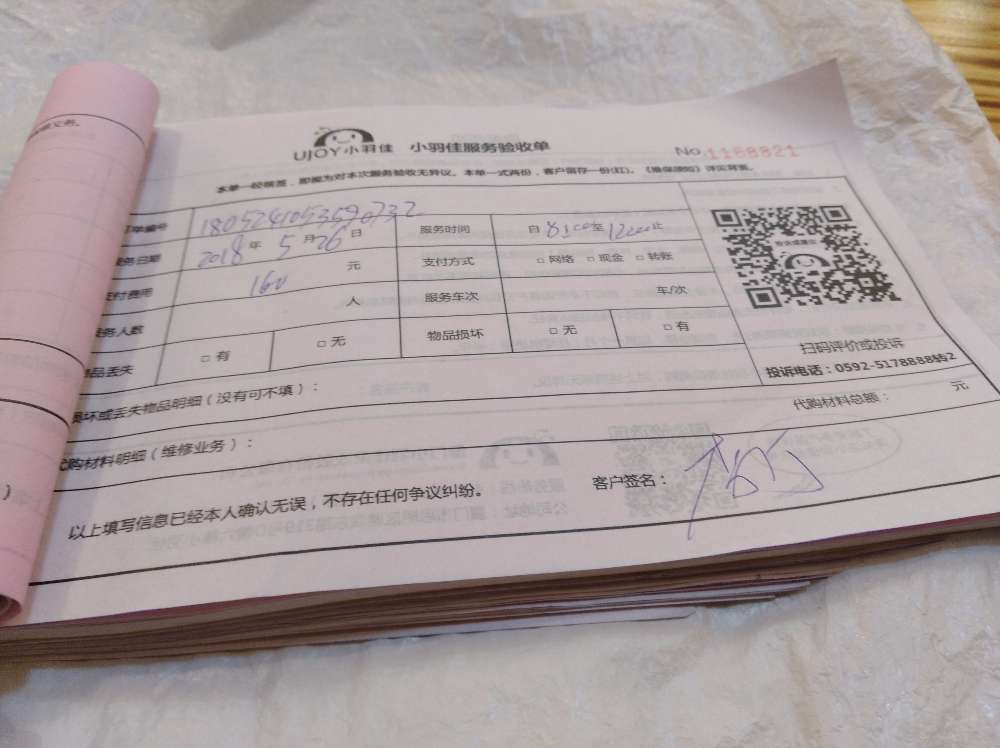 UJOY小羽佳 小羽佳服务验收单 No.1168821
本单一经核签，即视为对本次服务验收无异议。本单一式两份，客户留存一份(红)。《维保须知》详见背面。
单编号 1805241053590732
务日期 2018年5月26日 服务时间 自8:00至12:00止
付费用 160 元 支付方式 □网络 □现金 □转账
务人数 人 服务车次 车/次
品丢失 □有 □无 物品损坏 □无 □有
扫码评价或投诉
投诉电话：0592-5178888转2
损坏或丢失物品明细（没有可不填）：
代购材料明细（维修业务）： 代购材料总额： 元
以上填写信息已经本人确认无误，不存在任何争议纠纷。 客户签名：